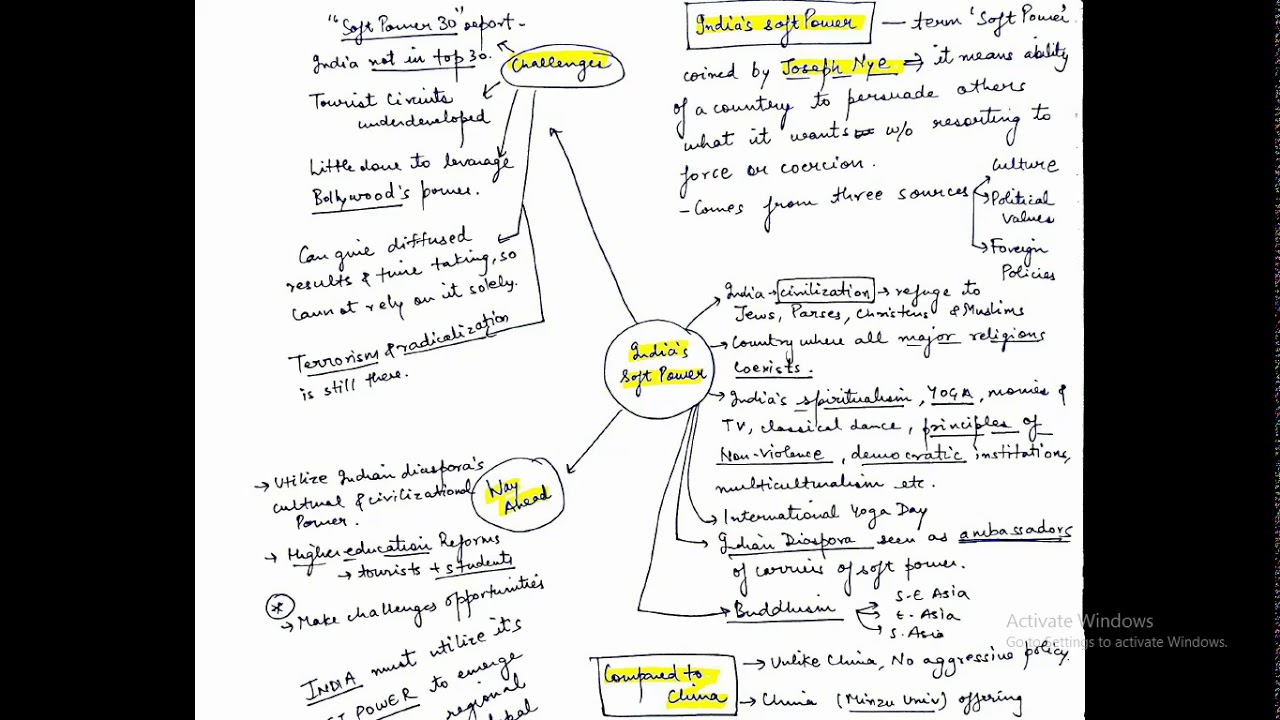 India's soft Power — term 'Soft Power'
coined by Joseph Nye ⇒ it means ability
of a country to persuade others
what it wants w/o resorting to
force or coercion.
- Comes from three sources
Culture
Political
Values
Foreign
Policies
"Soft Power 30" report -
India not in top 30.
Challenges
Tourist Circuits
underdeveloped
Little done to leverage
Bollywood's power.
Can give diffused
results & time taking, so
cannot rely on it solely.
Terrorism & radicalization
is still there.
India's
Soft Power
India → civilization → refuge to
Jews, Parses, Christens & Muslims
→ Country where all major religions
coexists.
→ India's spiritualism, YOGA, movies &
TV, classical dance, principles of
Non-violence, democratic institutions,
multiculturalism etc.
→ International Yoga Day
→ Indian Diaspora seen as ambassadors
of carriers of soft power.
→ Buddhism
S-E Asia
E. Asia
S. Asia
Way
Ahead
→ Utilize Indian diaspora's
cultural & civilizational
Power.
→ Higher education Reforms
→ tourists + students
* → Make challenges opportunities
INDIA must utilize it's
POWER to emerge
regional
Compared to
China
→ Unlike China, No aggressive policy
→ China (Minzu Univ) offering
Activate Windows
Go to Settings to activate Windows.